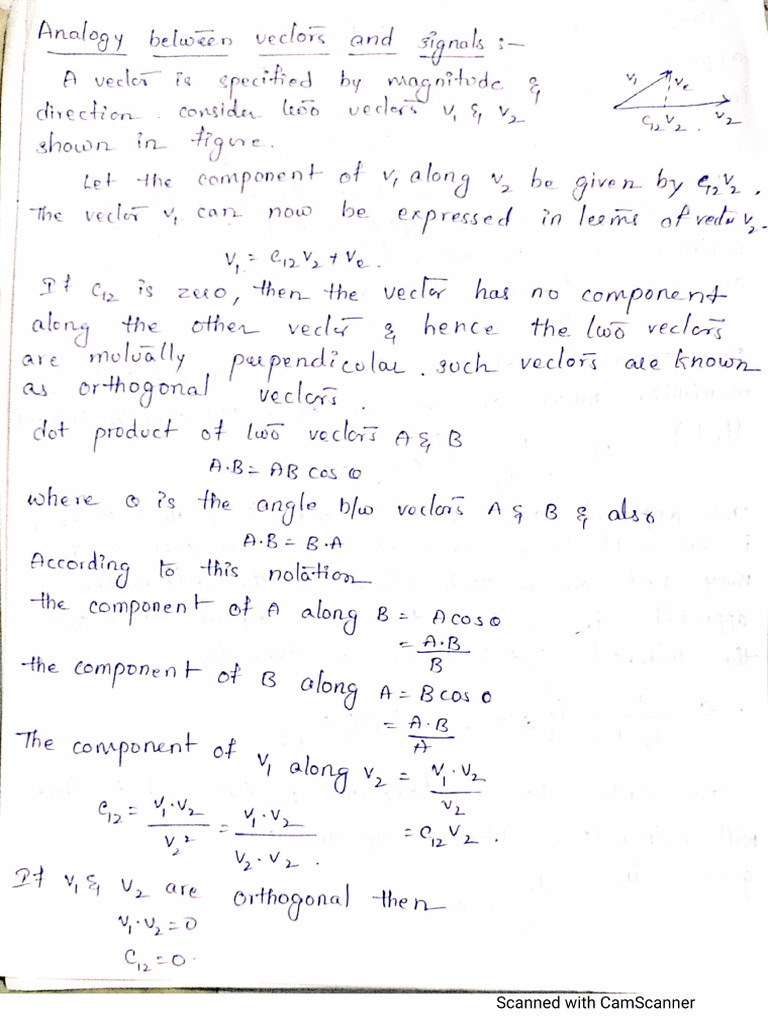 Analogy between vectors and signals :-
A vector is specified by magnitude &
direction. consider two vectors V1 & V2
shown in figure.
V1 Ve
C12V2. V2
Let the component of V1 along V2 be given by C12V2.
The vector V1 can now be expressed in terms of vector V2.
V1 = C12V2 + Ve.
If C12 is zero, then the vector has no component
along the other vector & hence the two vectors
are mutually perpendicular. such vectors are known
as orthogonal vectors.
dot product of two vectors A & B
A.B = AB cos θ
where θ is the angle b/w vectors A & B & also
A.B = B.A
According to this notation
the component of A along B = A cos θ
= A.B / B
the component of B along A = B cos θ
= A.B / A
The component of V1 along V2 = V1.V2 / V2
C12 = V1.V2 / V2² = V1.V2 / V2.V2. = C12V2.
If V1 & V2 are orthogonal then
V1.V2 = 0
C12 = 0.
Scanned with CamScanner